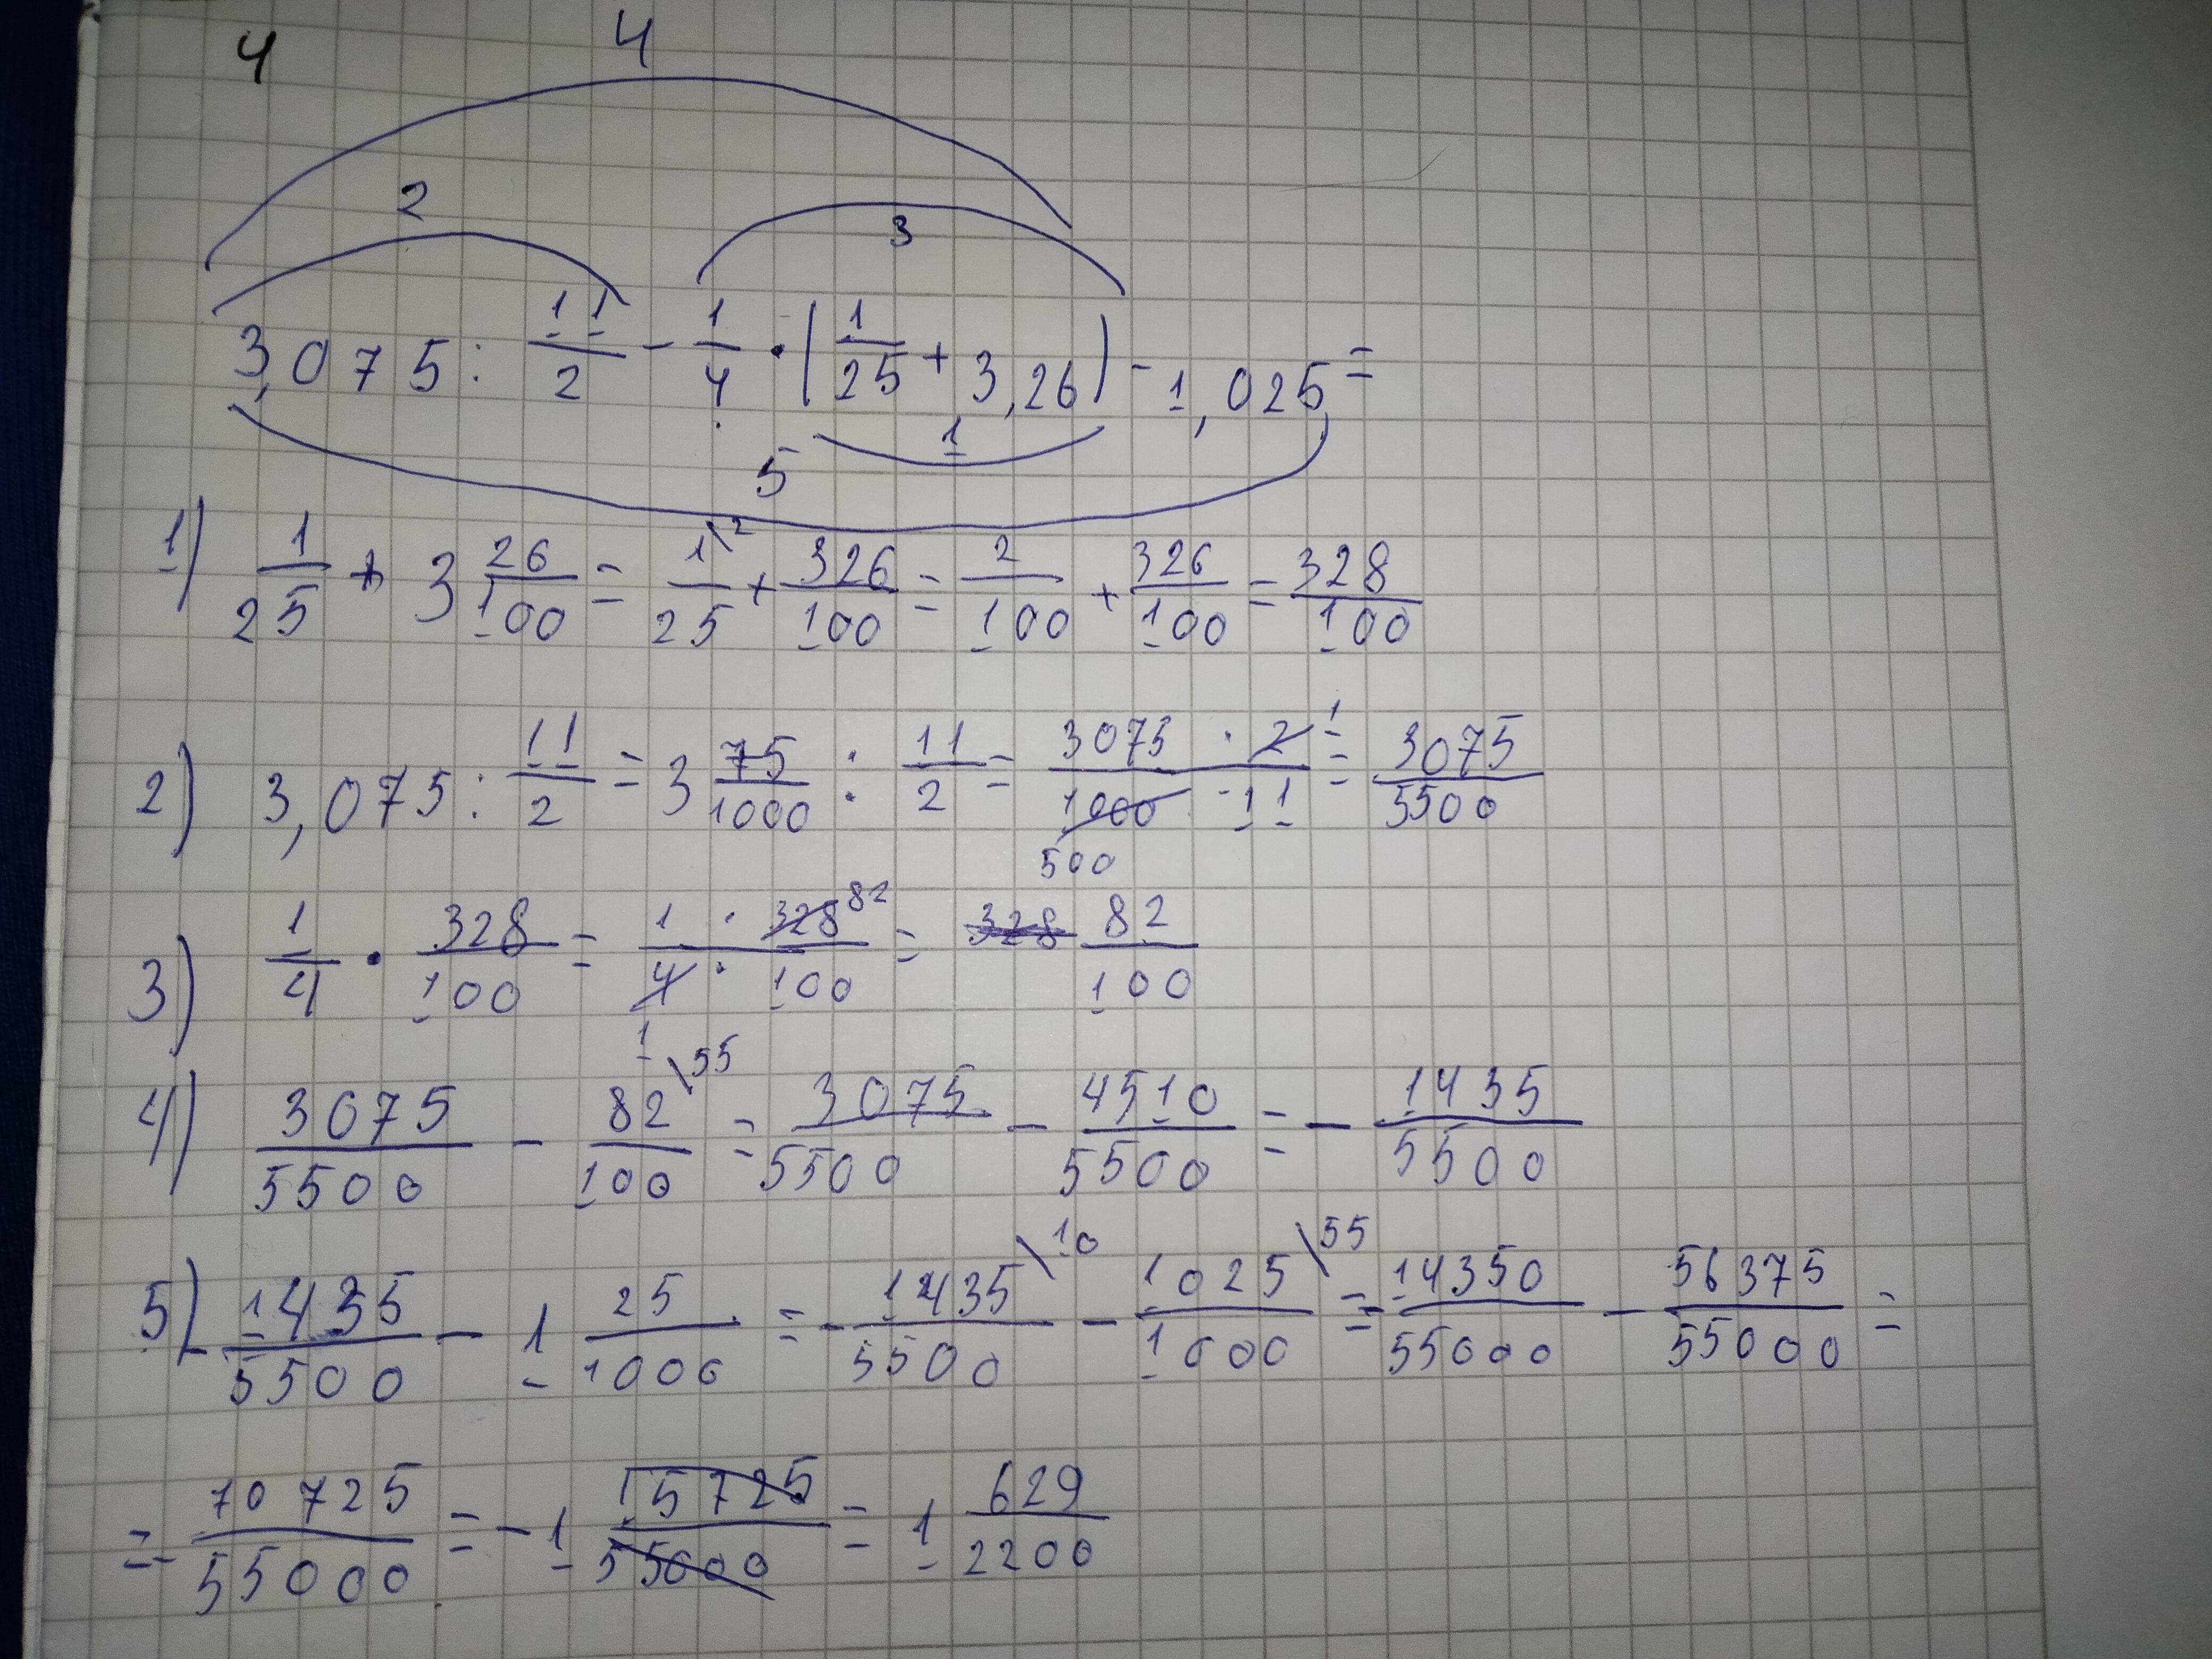 4 4
2 3
3,075 : 11/2 - 1/4 · (1/25 + 3,26) - 1,025 =
1
5
1) 1/25 + 3 26/100 = 1\2/25 + 326/100 = 2/100 + 326/100 = 328/100
2) 3,075 : 11/2 = 3 75/1000 : 11/2 = 3075 · 2 1/1000 500 · 11 = 3075/5500
3) 1/4 · 328/100 = 1 · 328 82/4 1 · 100 = 328 82/100
4) 3075/5500 - 82\55/100 = 3075/5500 - 4510/5500 = - 1435/5500
5) - 1435/5500 - 1 25/1000 = - 1435\10/5500 - 1025\55/1000 = - 14350/55000 - 56375/55000 =
= - 70725/55000 = - 1 15725/55000 = 1 629/2200